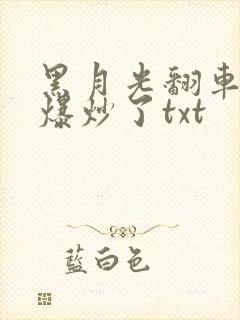 黑月光翻車
爆炒了txt
藍白色